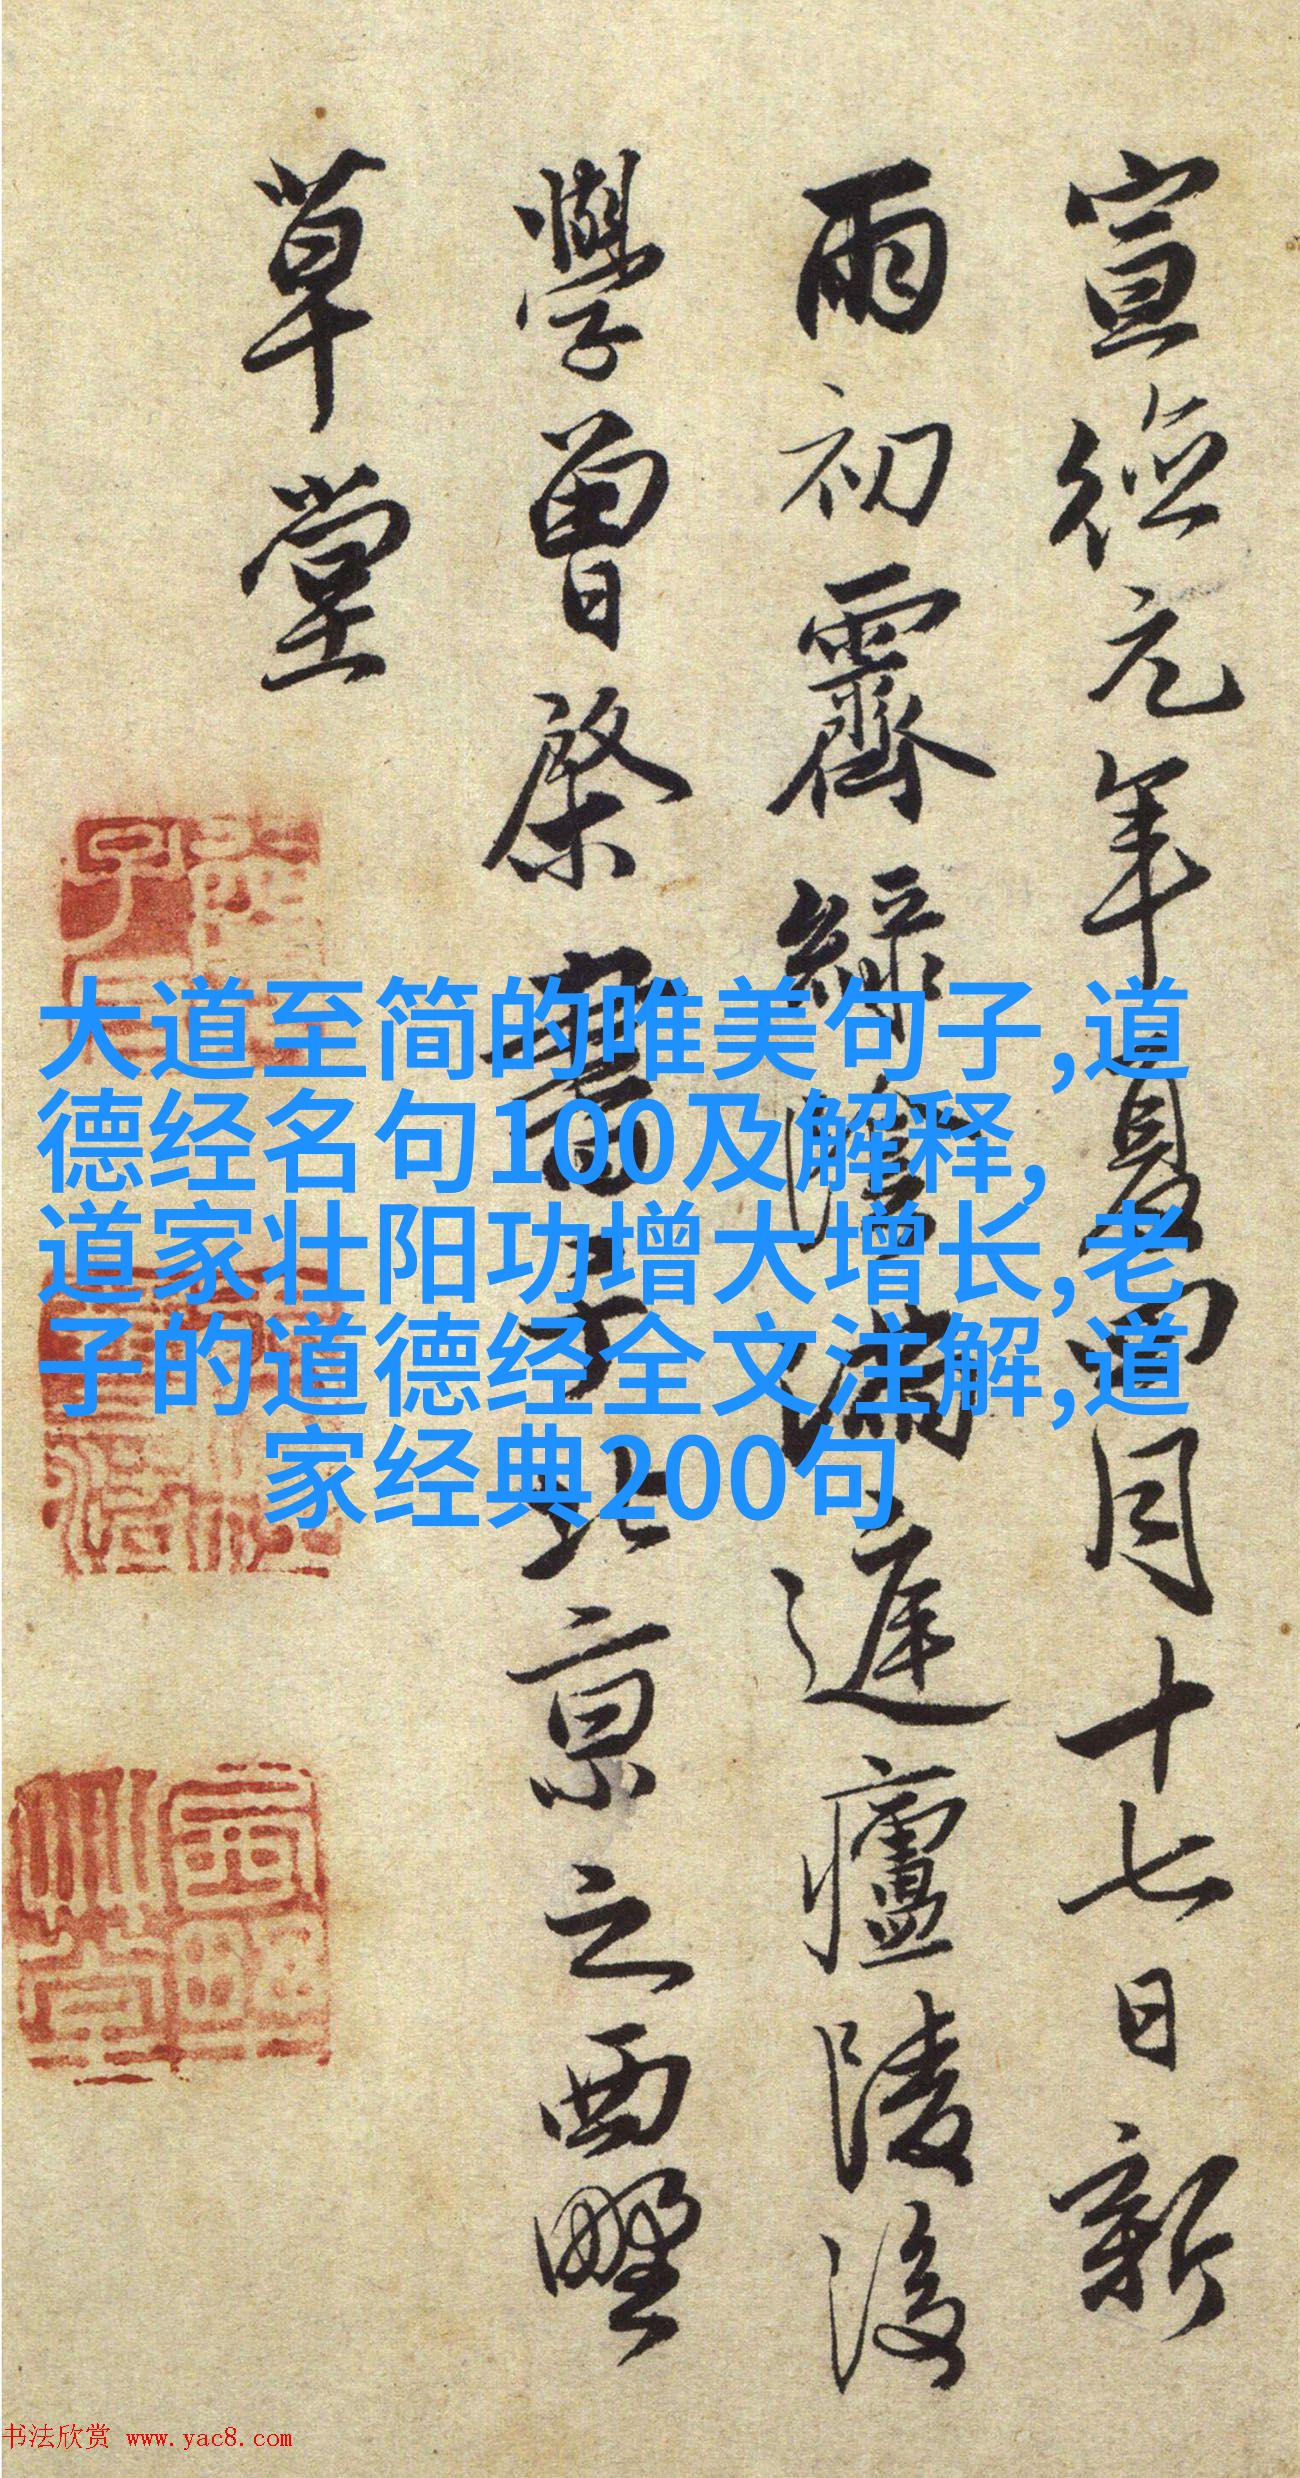 宣德元年夏四月十七日新
雨初霽綠陰滿庭廬陵後
學曾棨書于北京之西墅
草堂
大道至简的唯美句子,道
德经名句100及解释,
道家壮阳功增大增长,老
子的道德经全文注解,道
家经典200句
书法欣赏 www.yac8.com